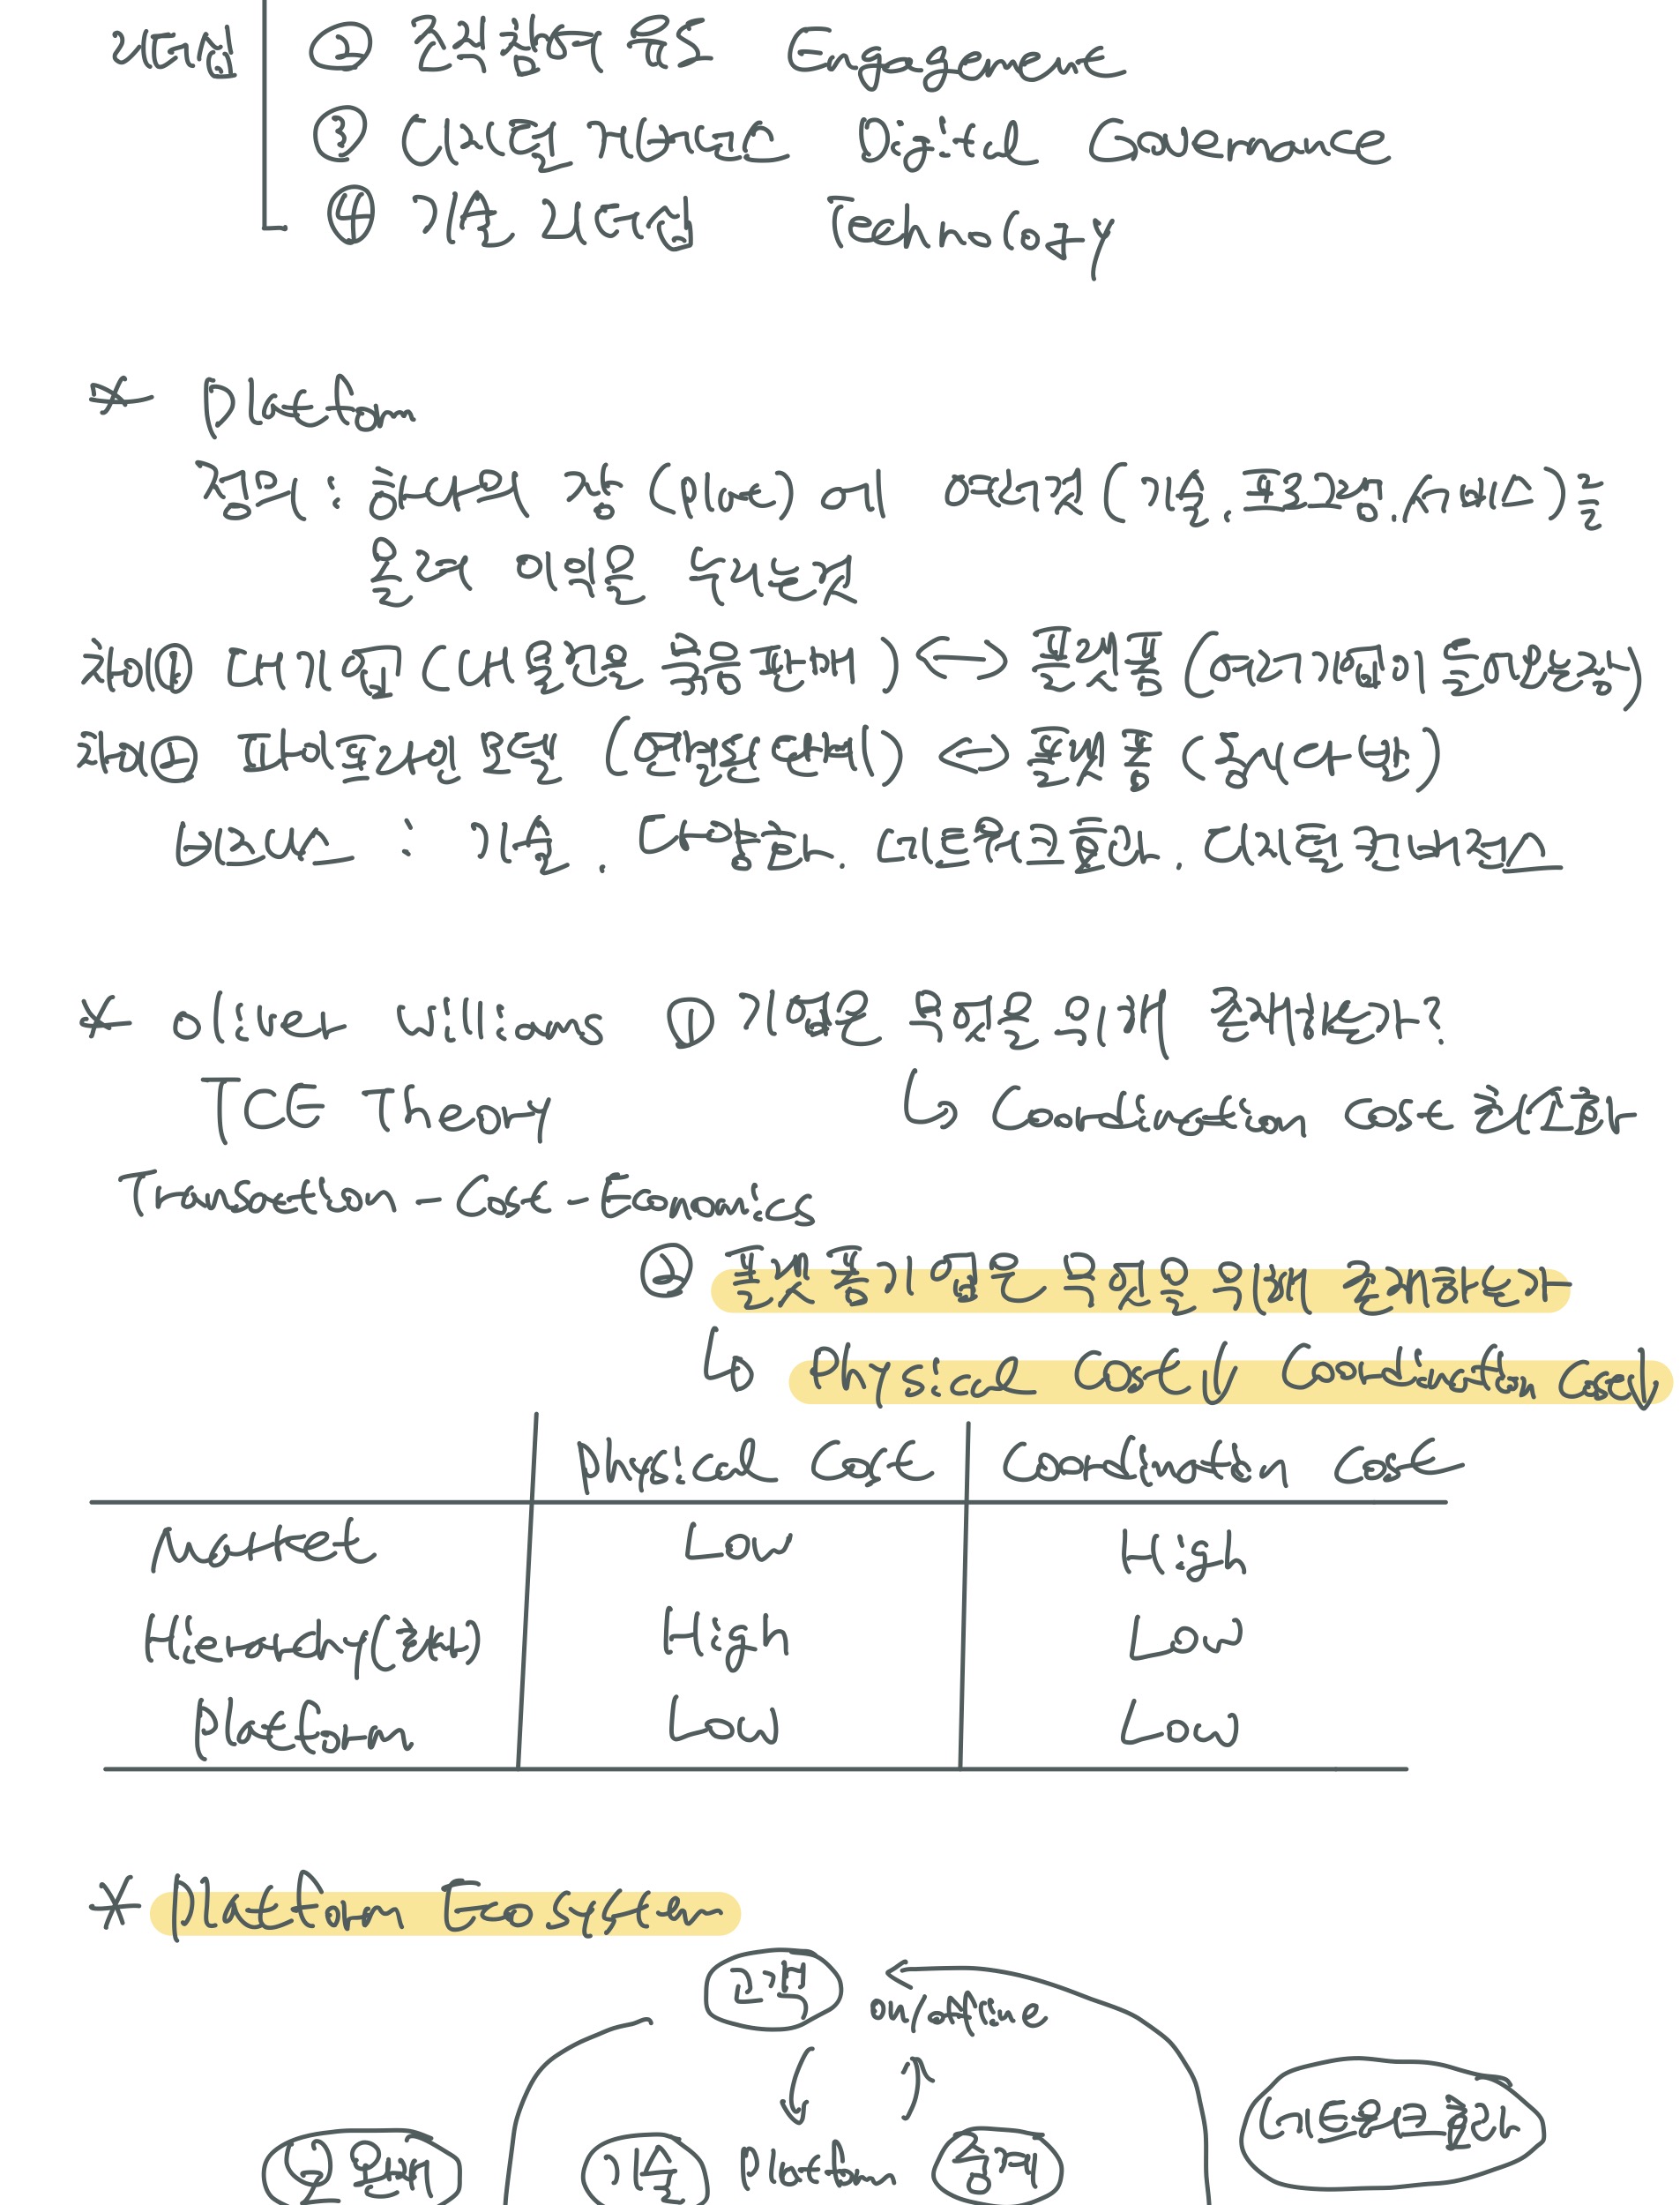 리더쉽 ② 조직참여 유도 Engagement
③ 디지털 거버넌스 Digital Governance
④ 기술 리더쉽 Technology
* Platform
정의 : 하나의 장 (Place) 에 여러개 (기술, 프로그램, 서비스)를
올려 이익을 누리는것
차이① 대기업 (내 물건을 유통판매) <=> 플랫폼 (여러기업이 들어왔을 활)
차이② 파이프라인 모델 (연결된 단계) <=> 플랫폼 (동시다발)
비즈니스 : 기술, 다양화, 네트워크효과, 디지털컨버전스
* Oliver Williams ① 기업은 무엇을 위해 존재하는가?
TCE Theory ↳ Coordination Cost 최소화
Transaction - Cost - Economics
② 플랫폼기업은 무엇을 위해 존재하는가
↳ Physical Cost ↓ Coordination Cost ↓
Physical Cost Coordination Cost
Market Low High
Hierarchy(회사) High Low
Platform Low Low
* Platform Ecosystem
고객
on/offline
네트워크효과
기술 Platform 중개